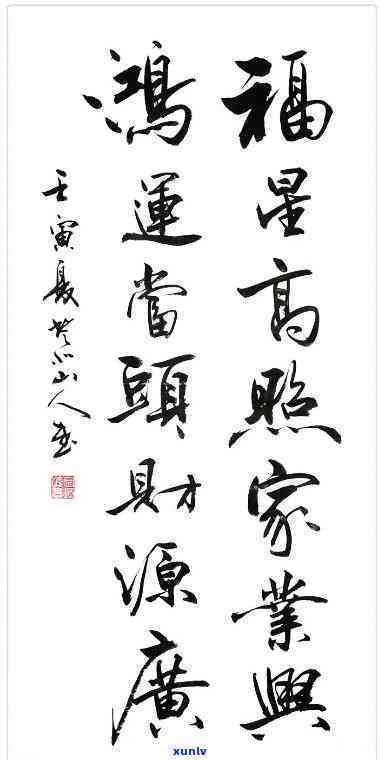 福星高照家業興
鴻運當頭財源廣
壬寅夏 山人書
xunlv